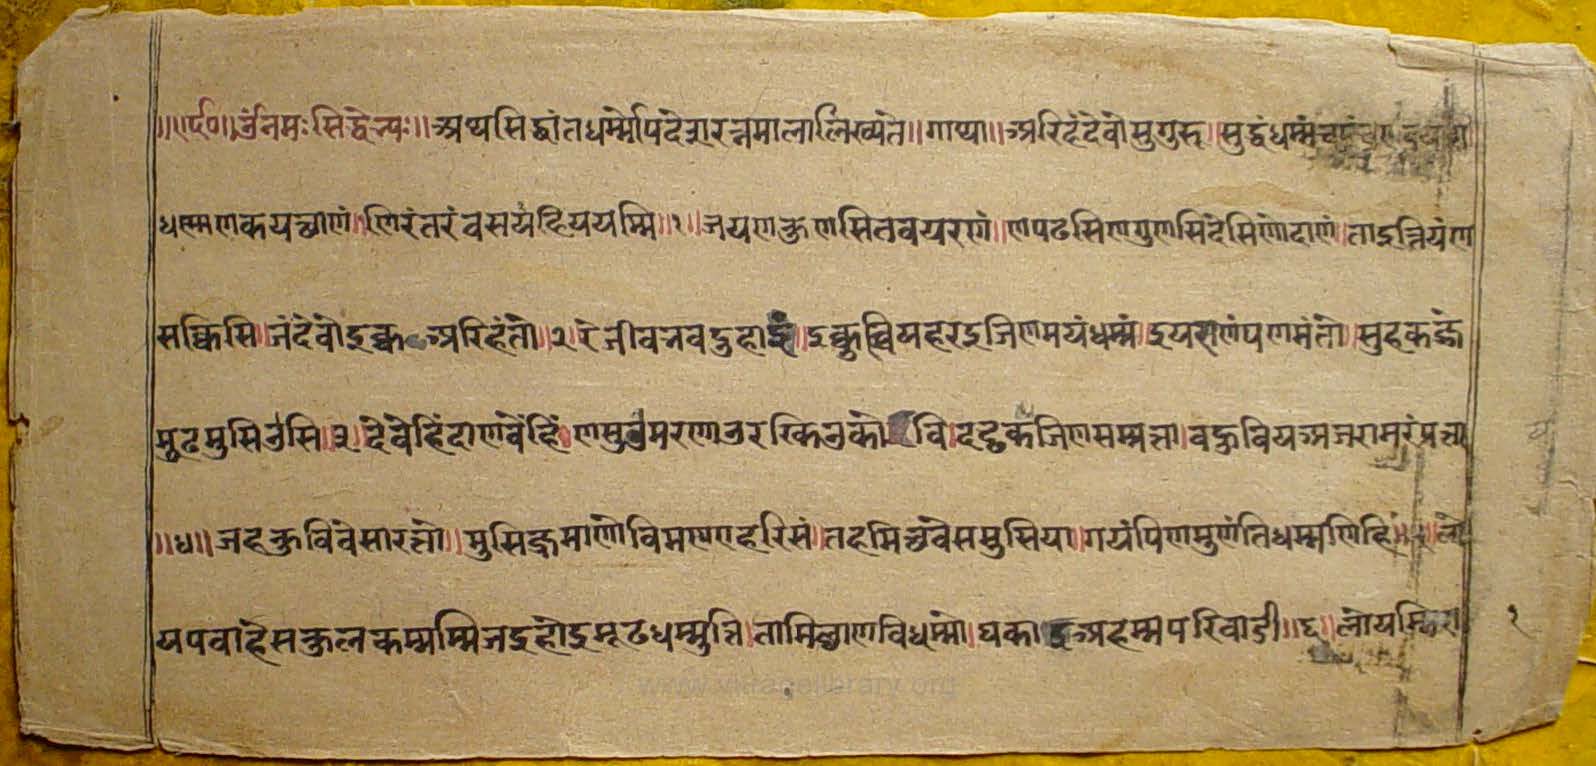 ॥ए६०॥ उंनमः सिद्धेभ्यः॥ अथसिद्धांतधर्म्मोपदेशरत्नमालालिख्यंते॥ गाथा॥ अरिहंदेवोसुगुरू॥ सुद्धंधम्मंचपंच
धम्माणकयच्छाणं॥ णिरंतरंवसयंहिययम्मि॥१॥ जयणकुणसितवयरणं॥ णपढसिणगुणसिंदेसिणोदाणं॥ ताइत्तियंण
सक्किसि॥ जंदेवोइक्क अरिहंतो॥२॥ रेजीवभवदुहाइं॥ इक्कुच्चियहरइजिणमयंधम्मं॥ इयराणंपणमंतो॥ सुहकज्जे
मूढमुसिउसि॥३॥ देवेहिंदाणवेंहिं॥ णसुउमरणाउरक्किउको वि॥ दढकजिणसम्मत्ता॥ बहुवियअजरामरंपत्ता
॥४॥ जहकुविवेसारत्तो॥ मुसिज्जमाणोविमण्णएहरिसं॥ तहमिच्छवेसमुसिया॥ गयंपिणमुणंतिधम्मणिहिं॥५॥ लो
यपवाहेसकुलकम्मम्मिजइहोइमूढधम्मुत्ति॥ तामिच्छाणविधम्मो॥ घका इअहम्मपरिवाडी॥६॥ लोयम्मि
१
www.vitragelibrary.org